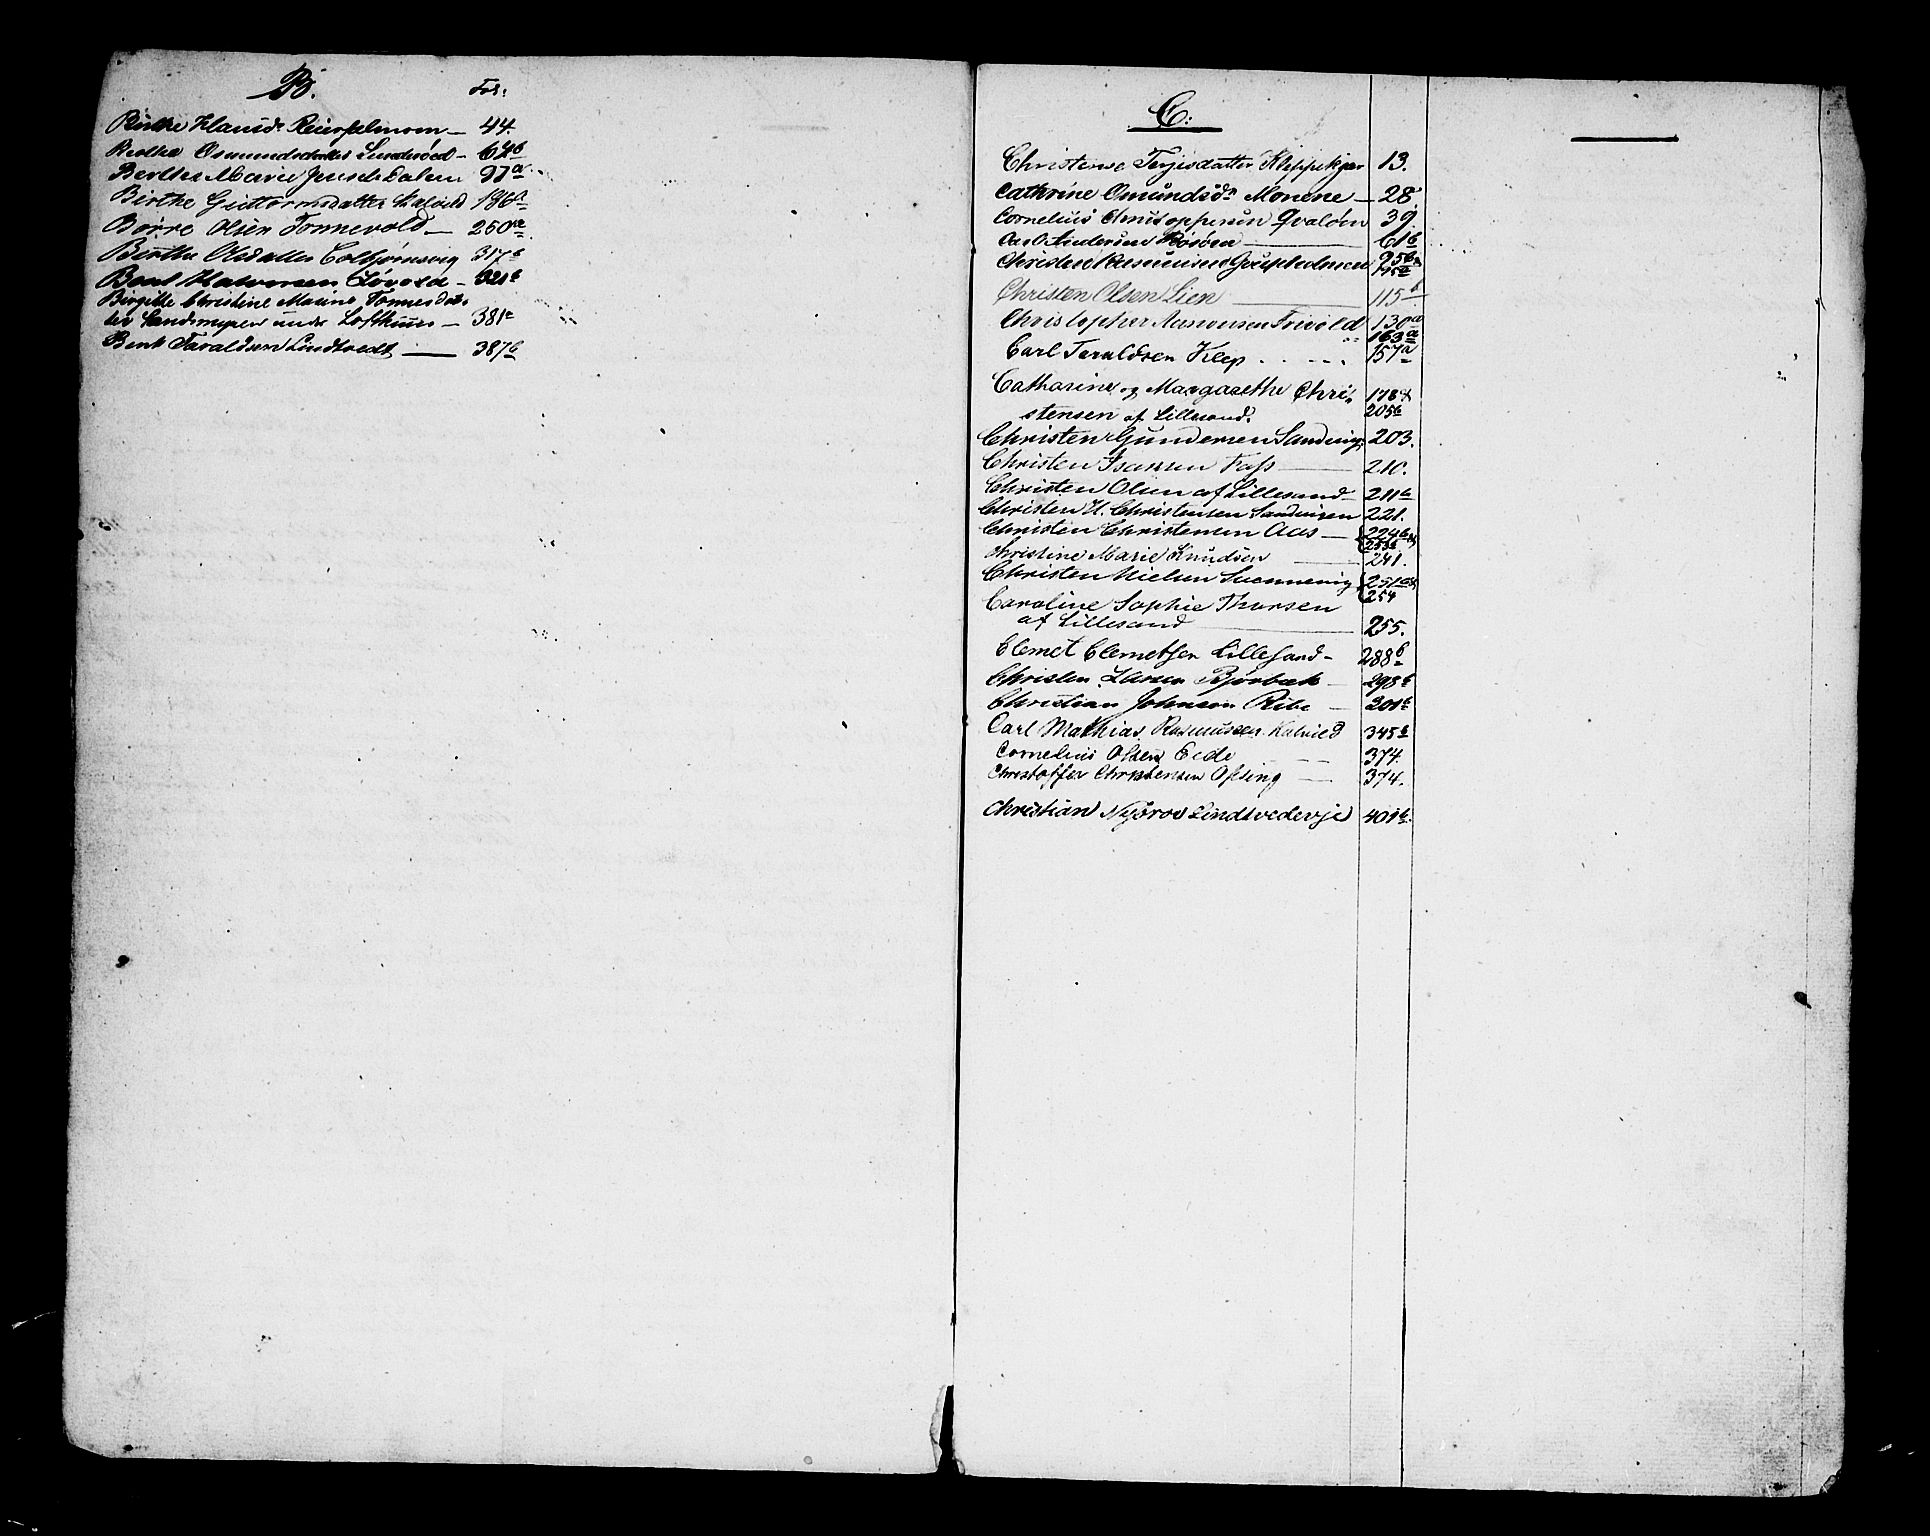 B. Fol:
Birthe Hansd. Reiersølmoen 44.
Berthe Osmundsdatter Sundsöed 62b
Berthe Marie Jensd. Dalen 97a
Birthe Guttormsdatter Kalvild 196a
Børre Olsen Tønnevold 250a
Berthe Olsdatter Colbjørnsvig 317b
Bent Halvorsen Løvold 321b
Birgitte Christine Marine Tønnesdat-
ter Sandsmyren under Lofthuus 381a
Bent Taraldsen Lindtvedt 387b
C:
Christense Terjisdatter Kleppekjær 13.
Cathrine Omundsdr Monene 28.
Cornelius Christoppersen Qvaløen 39.
Carl Andersen 61b
Christen Rasmusen Grupholmen 95b
115a
Christen Olsen Lien 115b
Christopher Aasonsen Frivold 130a
" 163a
Carl Teraldsen Klep 157a
Catharine og Margarethe Chri-
stensen af Lillesand. 178 &
205b
Christen Gundersen Sandvig 203.
Christen Isaksen Fass 210.
Christen Olsen af Lillesand 211a
Christen H. Christensen Sandvigen 221.
Christen Christensen Aas 224b &
233b
Christine Marie Knudsen 241.
Christen Nielsen Svennevig 251a &
254
Caroline Sophie Thorsen
af Lillesand 255.
Clemet Clemetsen Lillesand 288b
Christen Larsen Bjørbæk 298b
Christian Johnsen Ribe 301b
Carl Mathias Rasmussen Kalvild 345b
Cornelius Olsen Eide 374.
Christoffer Christensen Øfsing 374.
Christian Nybroe Lindtvedevje 401b.